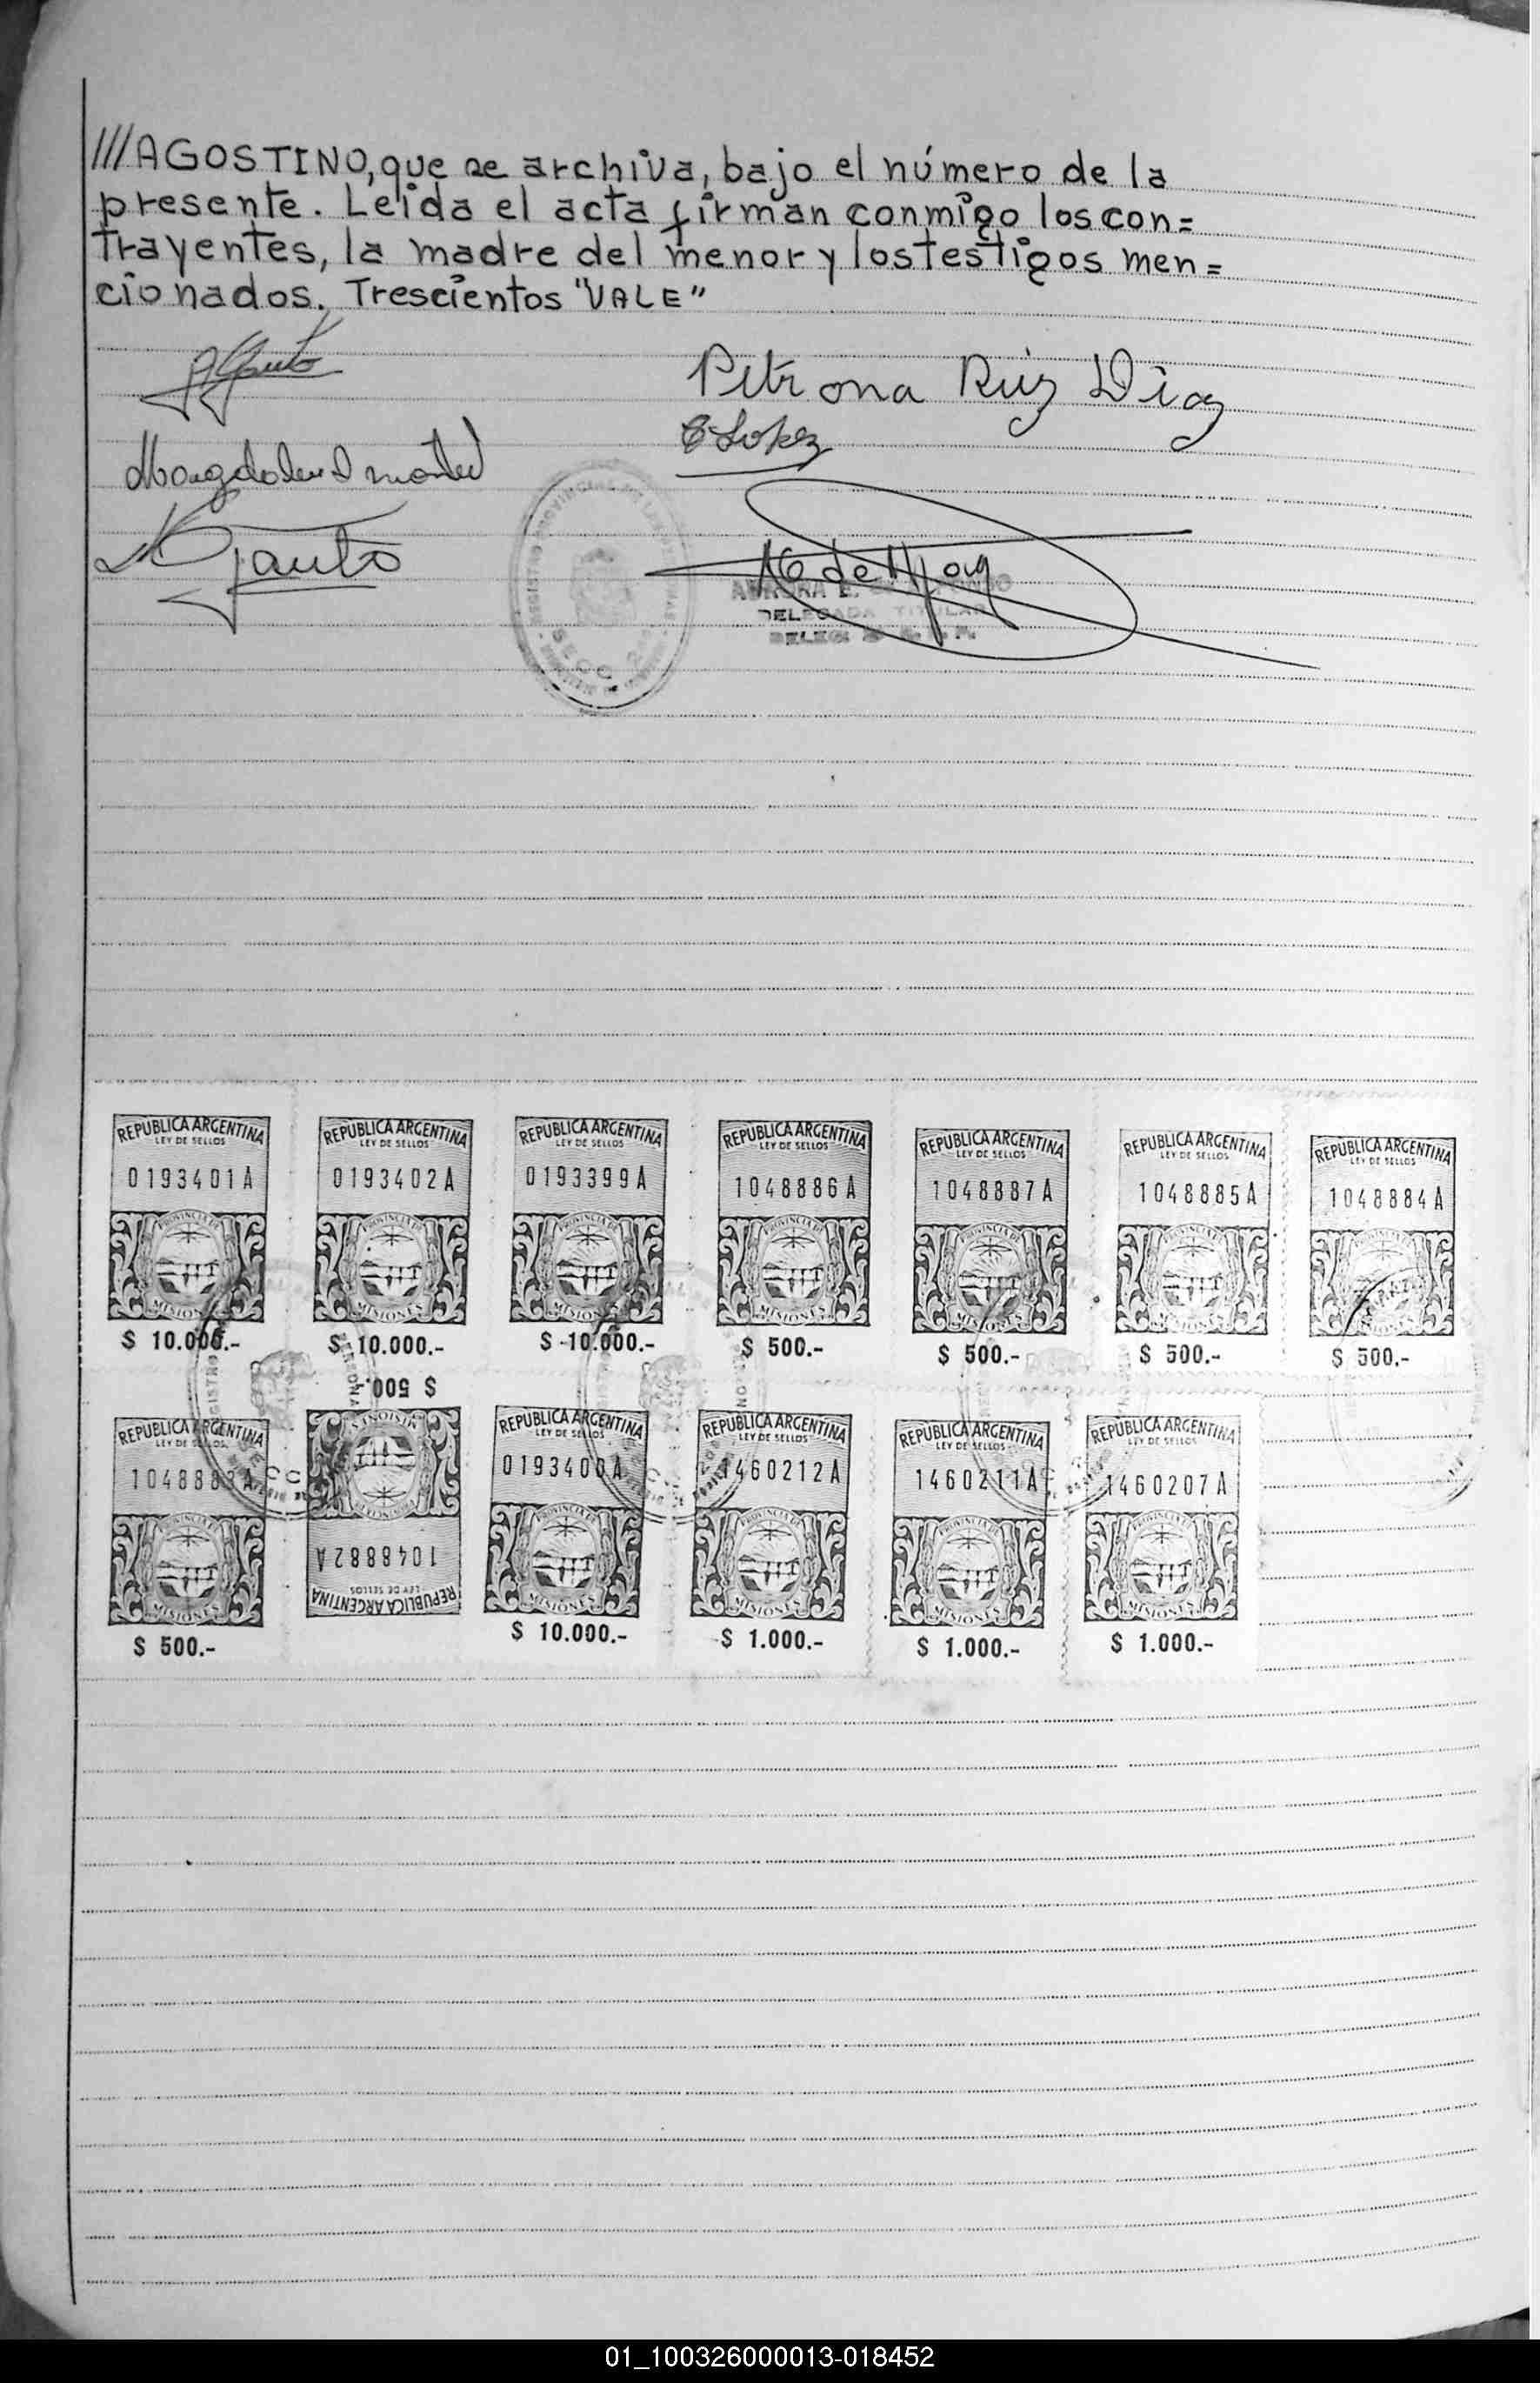 ///AGOSTINO, que se archiva, bajo el número de la
presente. Leída el acta firman conmigo los con=
trayentes, la madre del menor y los testigos men=
cionados. Trescientos "VALE"
Petrona Ruiz Diaz
E Lopez
DELEGADA TITULAR
REPUBLICA ARGENTINA
LEY DE SELLOS
0193401A
PROVINCIA DE
MISIONES
$ 10.000.-
REPUBLICA ARGENTINA
LEY DE SELLOS
0193402A
PROVINCIA DE
MISIONES
$ 10.000.-
REPUBLICA ARGENTINA
LEY DE SELLOS
0193399A
PROVINCIA DE
MISIONES
$ 10.000.-
REPUBLICA ARGENTINA
LEY DE SELLOS
1048886A
PROVINCIA DE
MISIONES
$ 500.-
REPUBLICA ARGENTINA
LEY DE SELLOS
1048887A
PROVINCIA DE
MISIONES
$ 500.-
REPUBLICA ARGENTINA
LEY DE SELLOS
1048885A
PROVINCIA DE
MISIONES
$ 500.-
REPUBLICA ARGENTINA
LEY DE SELLOS
1048884A
PROVINCIA DE
MISIONES
$ 500.-
REPUBLICA ARGENTINA
LEY DE SELLOS
1048883A
PROVINCIA DE
MISIONES
$ 500.-
REPUBLICA ARGENTINA
LEY DE SELLOS
1048882A
PROVINCIA DE
MISIONES
$ 500.-
REPUBLICA ARGENTINA
LEY DE SELLOS
0193400A
PROVINCIA DE
MISIONES
$ 10.000.-
REPUBLICA ARGENTINA
LEY DE SELLOS
1460212A
PROVINCIA DE
MISIONES
$ 1.000.-
REPUBLICA ARGENTINA
LEY DE SELLOS
1460211A
PROVINCIA DE
MISIONES
$ 1.000.-
REPUBLICA ARGENTINA
LEY DE SELLOS
1460207A
PROVINCIA DE
MISIONES
$ 1.000.-
01_100326000013-018452